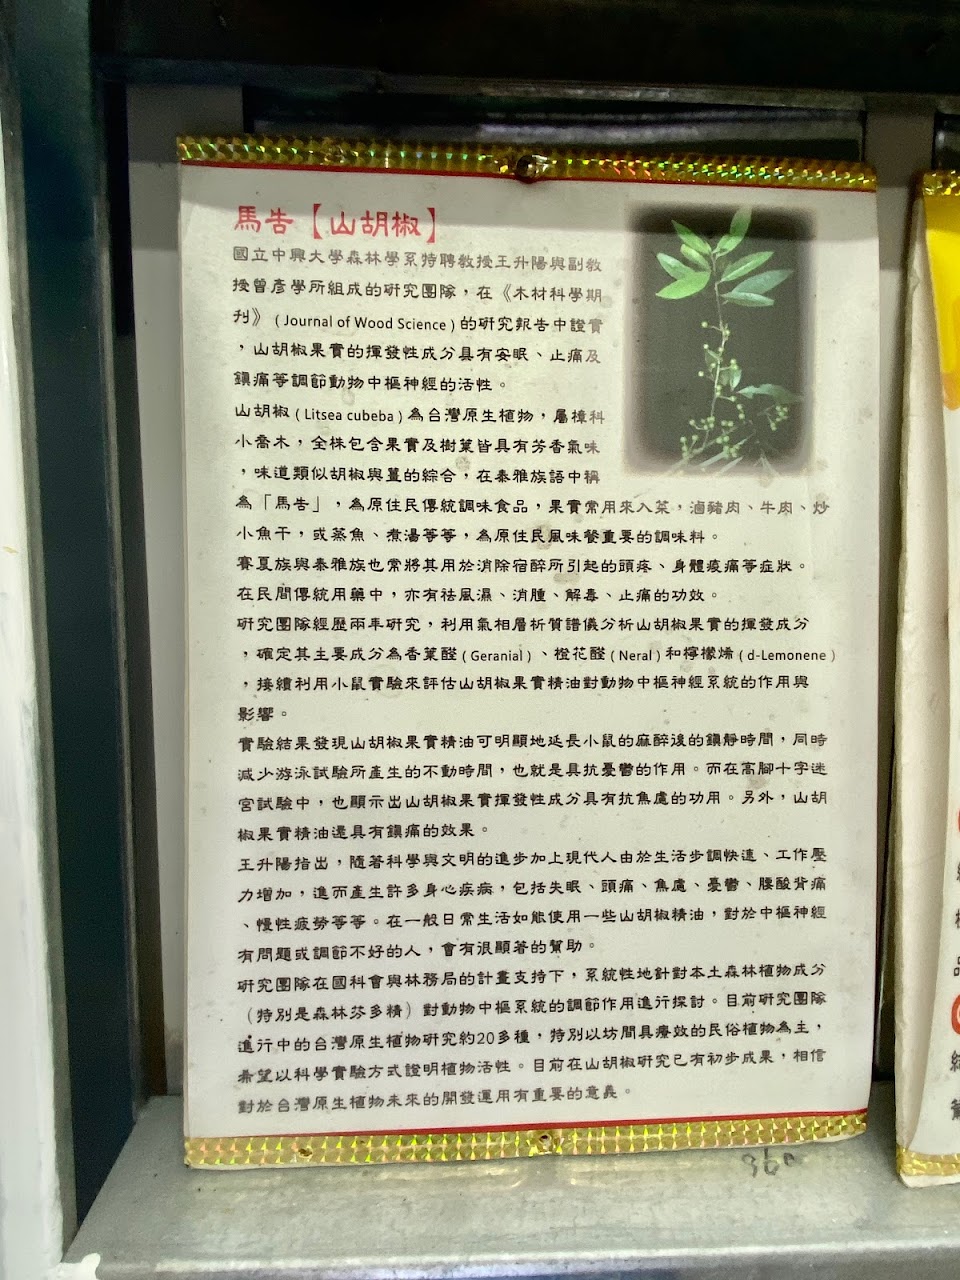 馬告【山胡椒】
國立中興大學森林學系特聘教授王升陽與副教
授曾彥學所組成的研究團隊，在《木材科學期
刊》（Journal of Wood Science）的研究報告中證實
，山胡椒果實的揮發性成分具有安眠、止痛及
鎮痛等調節動物中樞神經的活性。
山胡椒（Litsea cubeba）為台灣原生植物，屬樟科
小喬木，全株包含果實及樹葉皆具有芳香氣味
，味道類似胡椒與薑的綜合，在泰雅族語中稱
為「馬告」，為原住民傳統調味食品，果實常用來入菜，滷豬肉、牛肉、炒
小魚干，或蒸魚、煮湯等等，為原住民風味餐重要的調味料。
賽夏族與泰雅族也常將其用於消除宿醉所引起的頭疼、身體疲痛等症狀。
在民間傳統用藥中，亦有祛風濕、消腫、解毒、止痛的功效。
研究團隊經歷兩年研究，利用氣相層析質譜儀分析山胡椒果實的揮發成分
，確定其主要成分為香葉醛（Geranial）、橙花醛（Neral）和檸檬烯（d-Lemonene）
，接續利用小鼠實驗來評估山胡椒果實精油對動物中樞神經系統的作用與
影響。
實驗結果發現山胡椒果實精油可明顯地延長小鼠的麻醉後的鎮靜時間，同時
減少游泳試驗所產生的不動時間，也就是具抗憂鬱的作用。而在高腳十字迷
宮試驗中，也顯示出山胡椒果實揮發性成分具有抗焦慮的功用。另外，山胡
椒果實精油還具有鎮痛的效果。
王升陽指出，隨著科學與文明的進步加上現代人由於生活步調快速、工作壓
力增加，進而產生許多身心疾病，包括失眠、頭痛、焦慮、憂鬱、腰酸背痛
、慢性疲勞等等。在一般日常生活如能使用一些山胡椒精油，對於中樞神經
有問題或調節不好的人，會有很顯著的幫助。
研究團隊在國科會與林務局的計畫支持下，系統性地針對本土森林植物成分
（特別是森林芬多精）對動物中樞系統的調節作用進行探討。目前研究團隊
進行中的台灣原生植物研究約20多種，特別以坊間具療效的民俗植物為主，
希望以科學實驗方式證明植物活性。目前在山胡椒研究已有初步成果，相信
對於台灣原生植物未來的開發運用有重要的意義。